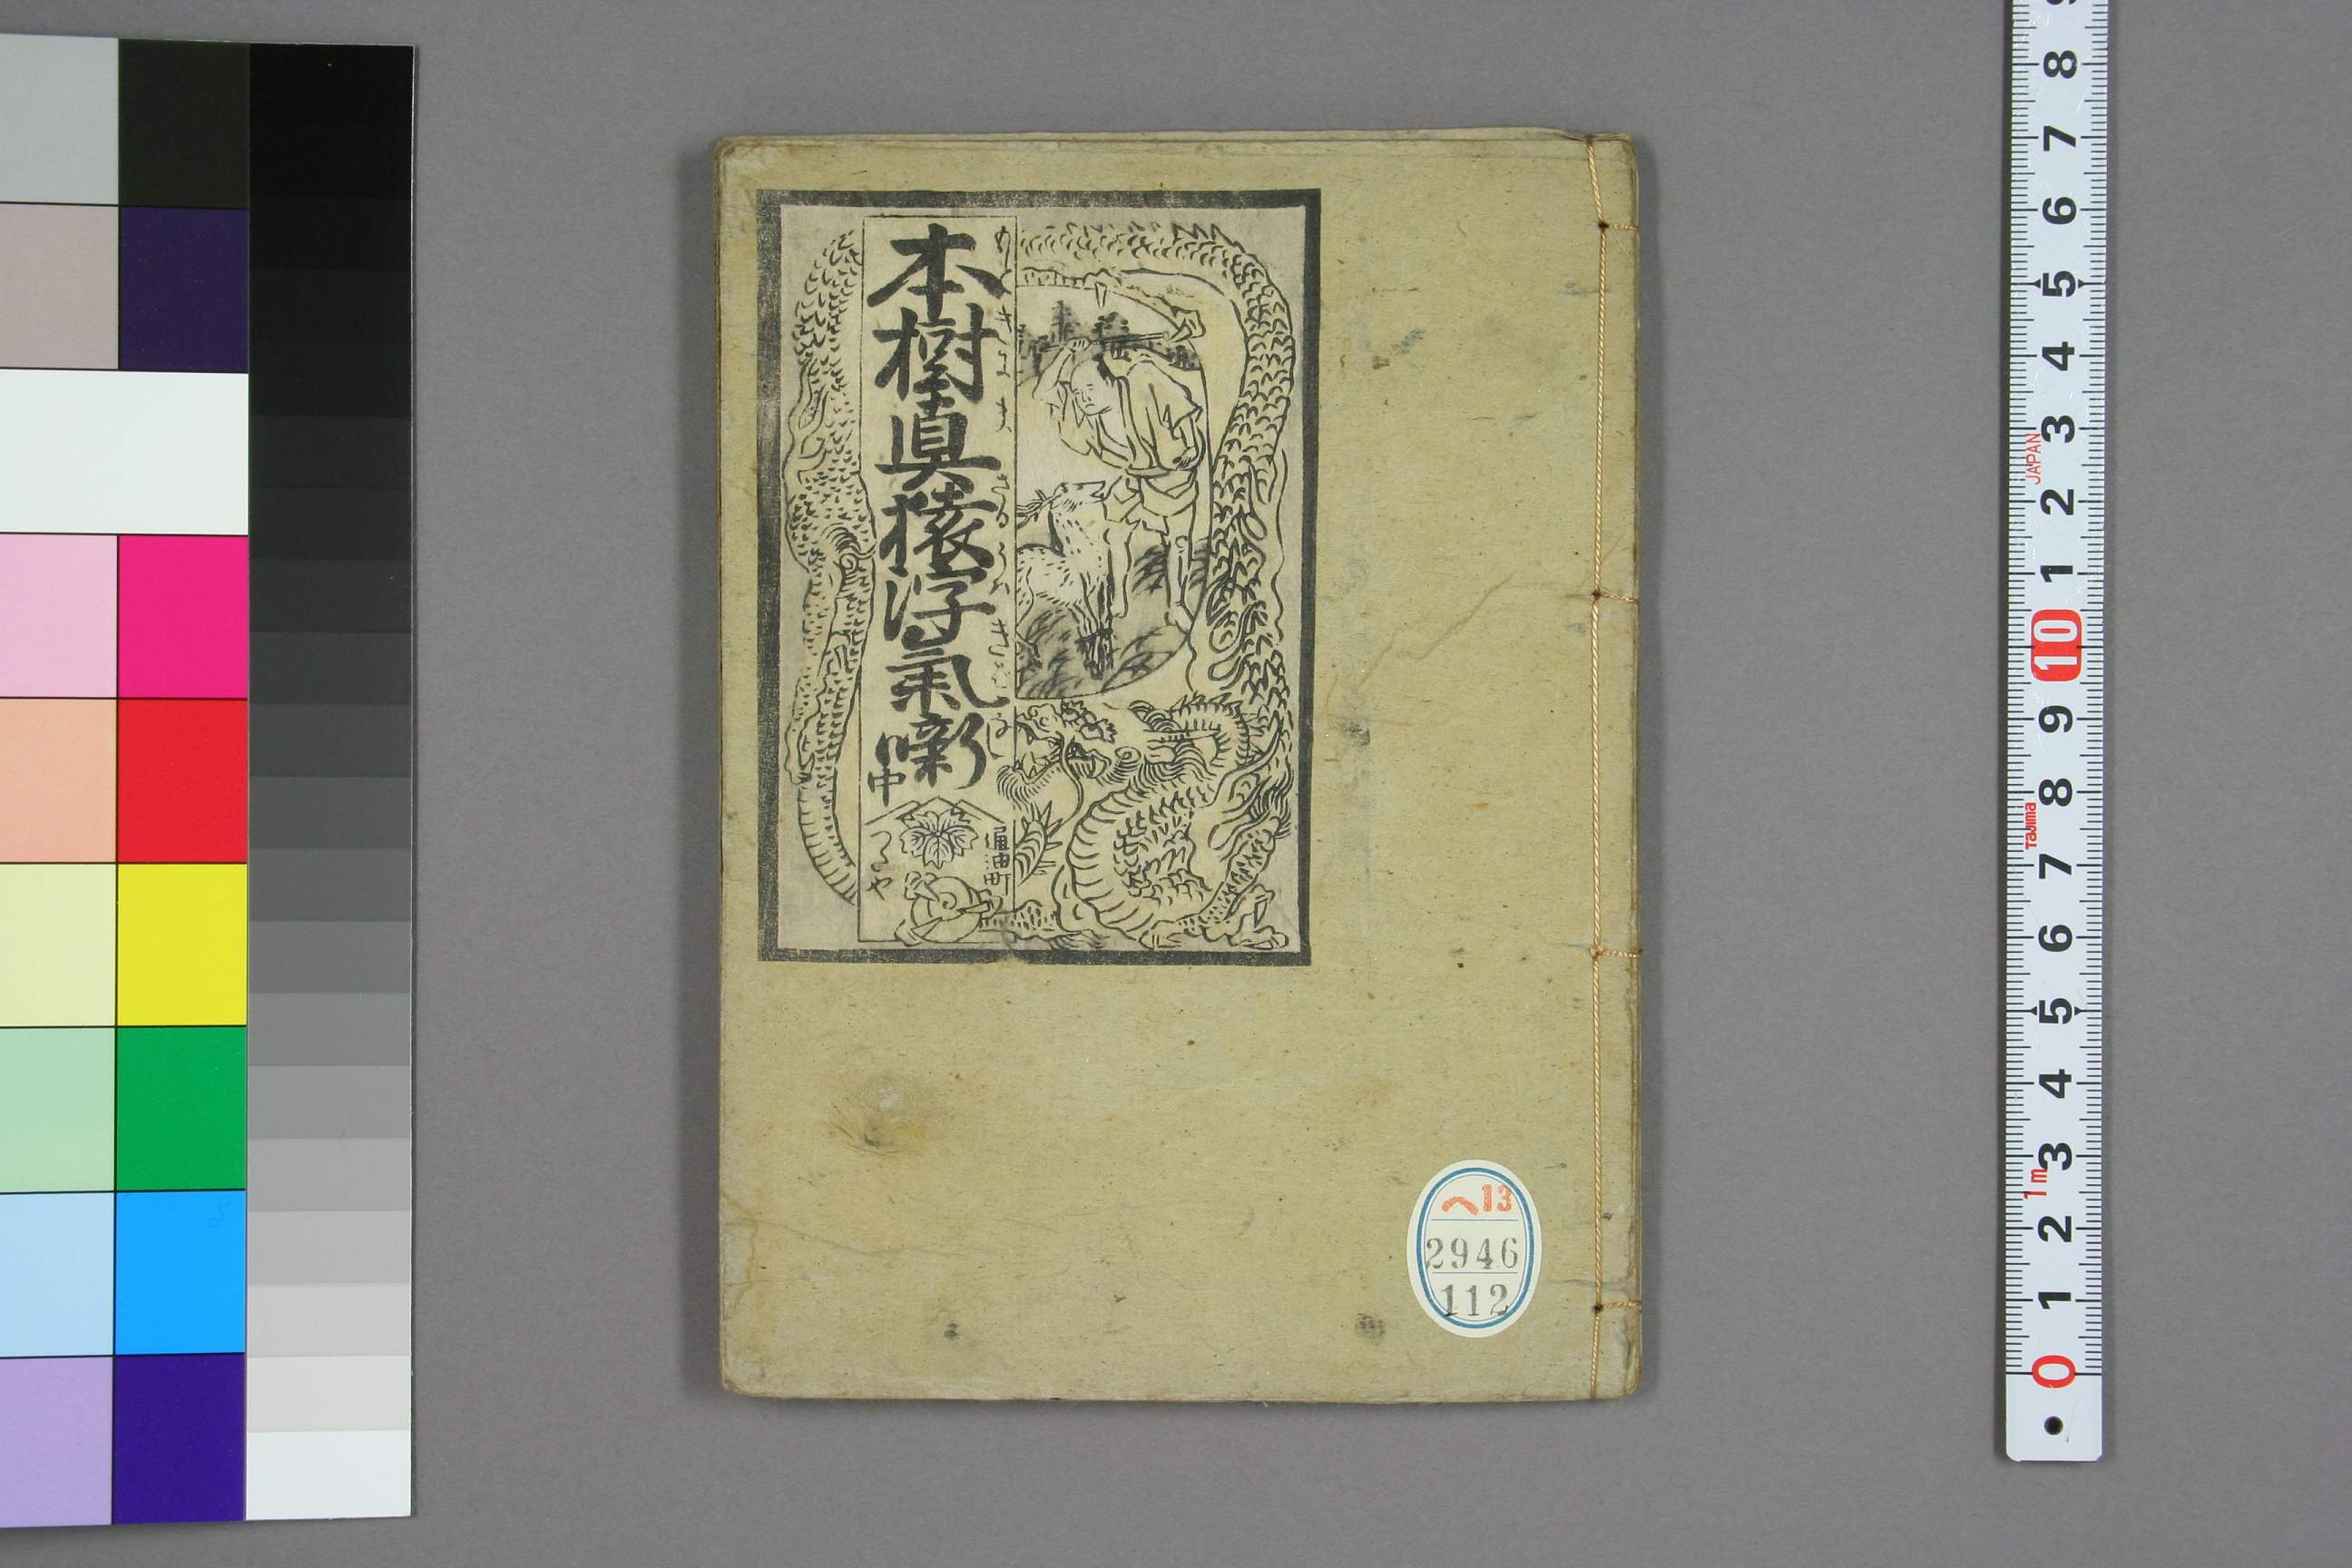 本樹真猿浮氣噺
もときにまさるうわきばなし
中
通油町
つたや
へ13
2946
112
9
8
7
6
5
4
3
2
1
10
9
8
7
6
5
4
3
2
1
0
JAPAN
Tajima
1m